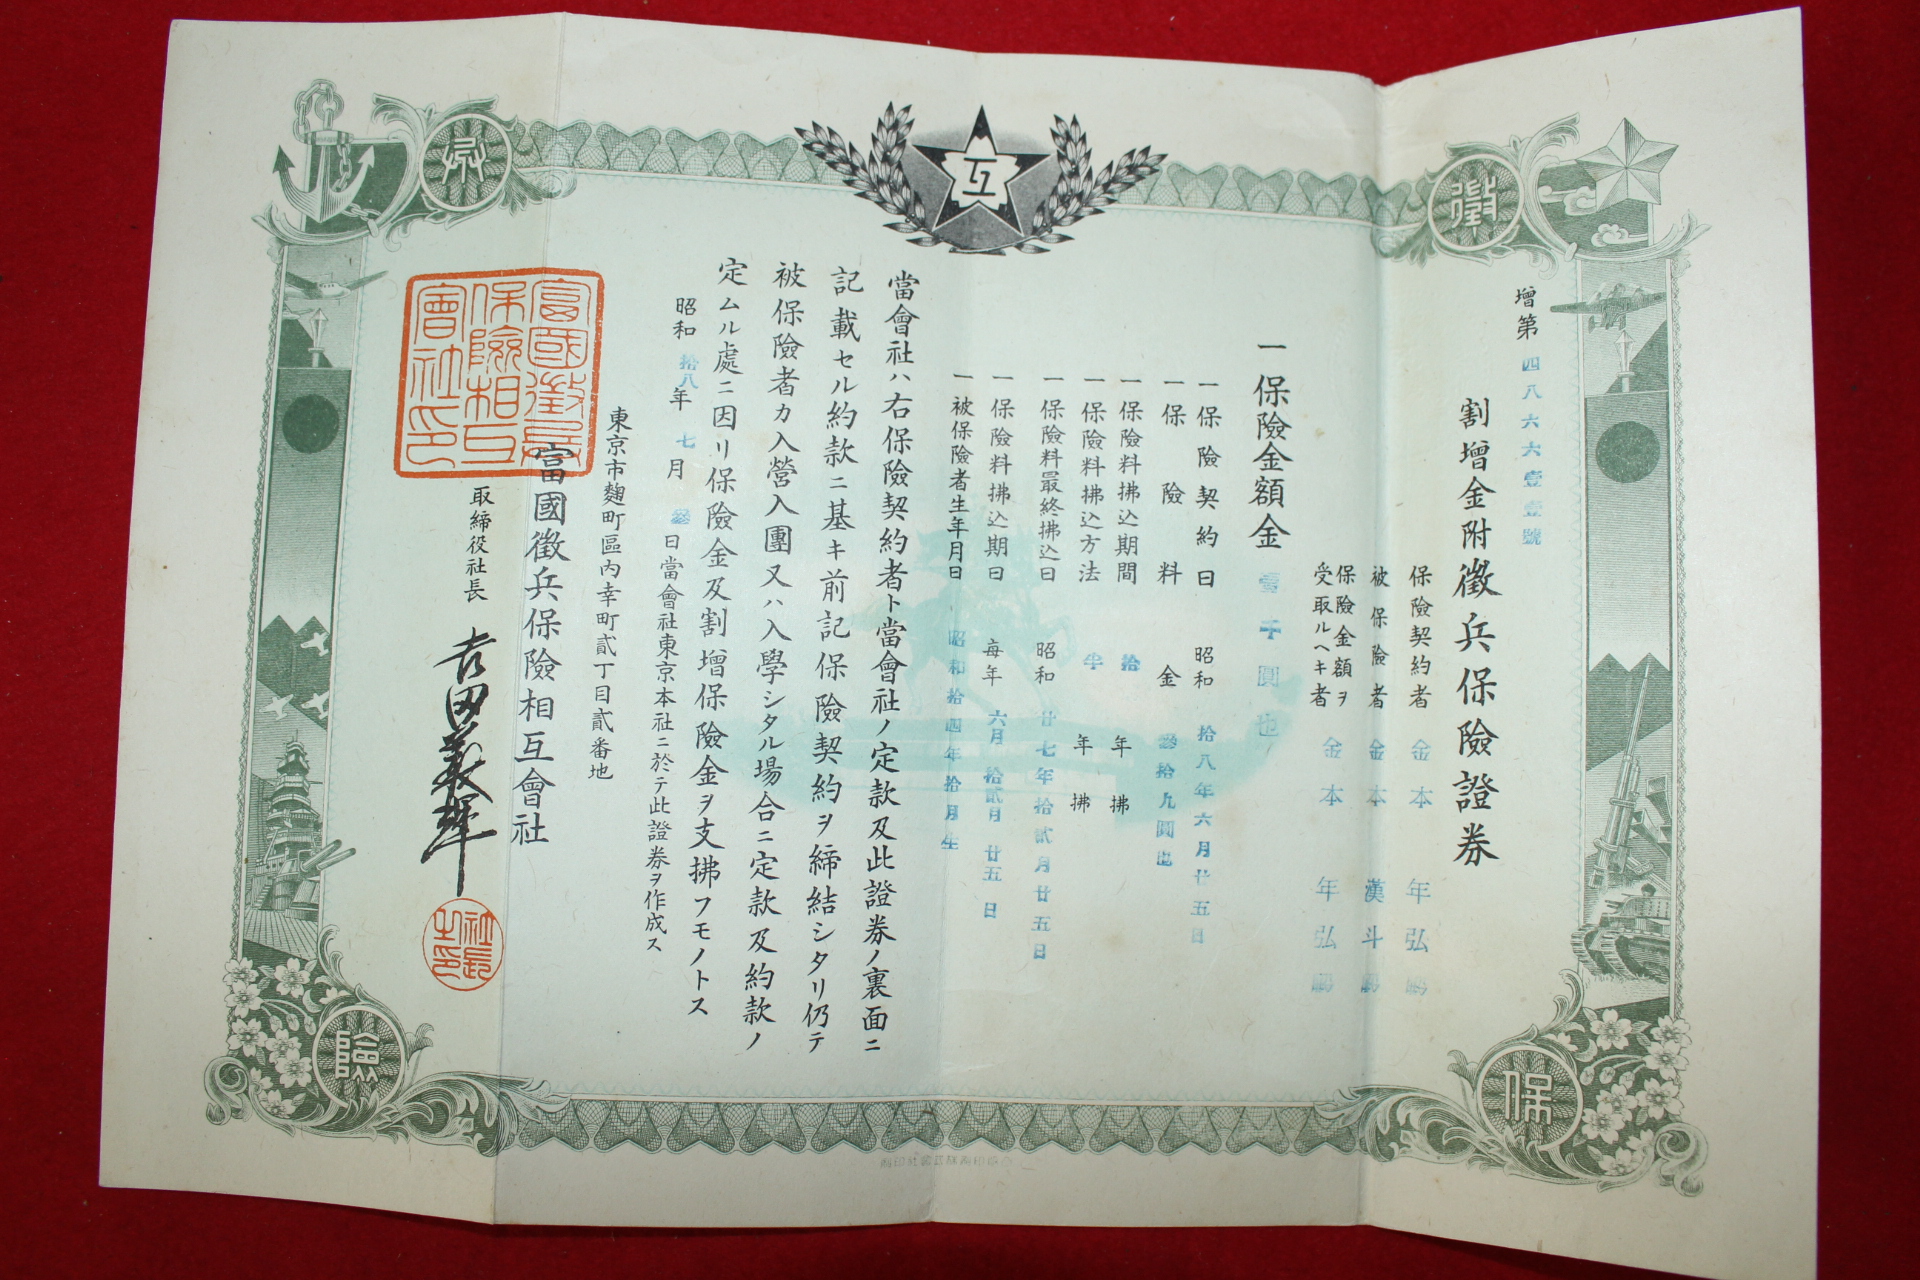 徴
兵
保
險
互
增第四八六六壹壹號
割增金附徵兵保險證券
保險契約者 金本年弘
被保險者 金本漢斗
保險金額ヲ
受取ルヘキ者 金本年弘
一保險金額金壹千圓也
一保險契約日 昭和拾八年六月廿五日
一保險料 金參拾九圓也
一保險料拂込期間 拾年拂
一保險料拂込方法 年拂
一保險料最終拂込日 昭和廿七年拾貳月廿五日
一保險料拂込期日 每年六月拾貳月廿五日
一被保險者生年月日 昭和拾四年拾月生
當會社ハ右保險契約者ト當會社ノ定款及此證券ノ裏面ニ
記載セル約款ニ基キ前記保險契約ヲ締結シタリ仍テ
被保險者カ入營入團又ハ入學シタル場合ニ定款及約款ノ
定ムル處ニ因リ保險金及割增保險金ヲ支拂フモノトス
昭和拾八年七月參日當會社東京本社ニ於テ此證券ヲ作成ス
東京市麴町區內幸町貳丁目貳番地
富國徵兵保險相互會社
取締役社長 吉田義輝
富國徵兵
保險相互
會社印
社長
之印